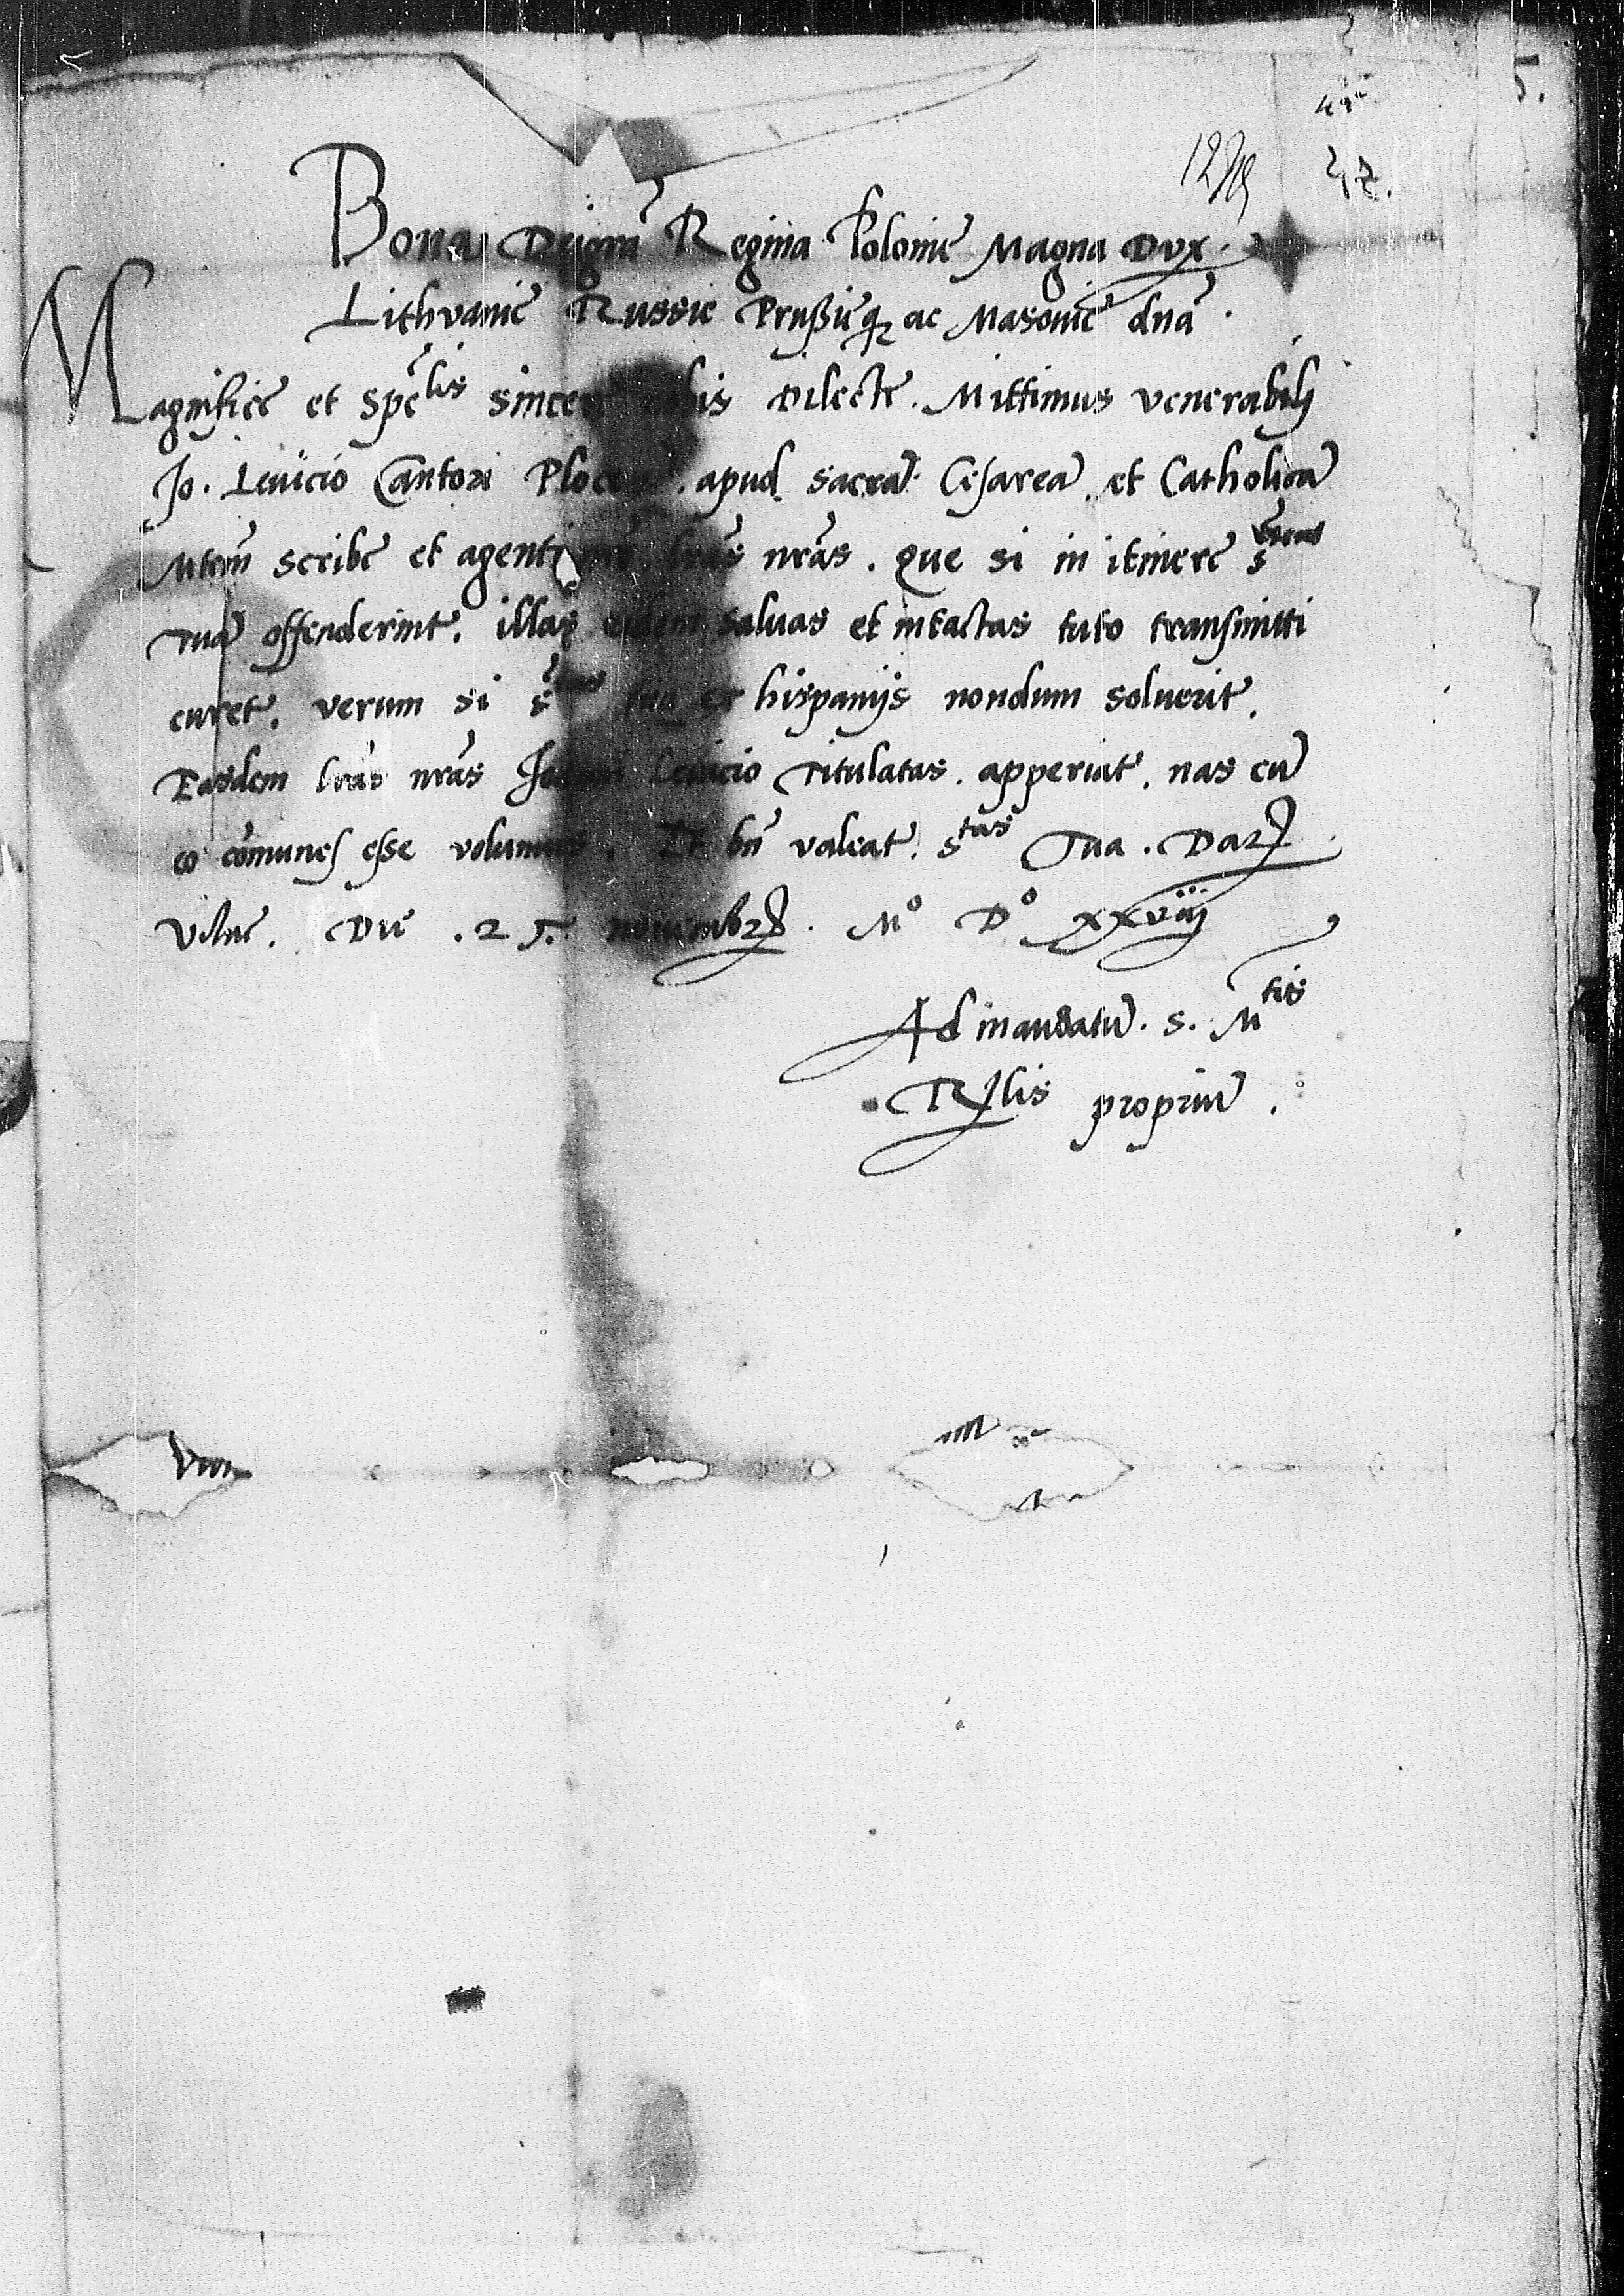 5.
Bona Dei gra͂ Regina Polonie Magna Dvx.
Lithvanie Russie Prussieq₃ ac Masovie dn͂a.
Magnifice et Spe͂lis sincere nobis Dilecte. Mittimus venerabili
Jo. Leuicio Cantori Plocen͂. apud sacra͂. Cesarea͂. et Catholica͂
Mtem͂ scribe et agenti lr͂as nr͂as. que si in itinere S͂tem
Tua͂ offenderint. illas eidem saluas et intactas tuto transmitti
curet. verum si S͂tas tua ex hispanijs nondum soluerit.
Easdem lr͂as nr͂as Joanni Leuicio Titulatas. apperiat. nas cu͂
eo co͂munes esse volumus. Et bn͂ valeat. Stas Tua. Dat
Vilne. Die .25. novembr. Mº Dº xxviij
Ad mandatu͂. S. Mtis
Rglis propriu͂.